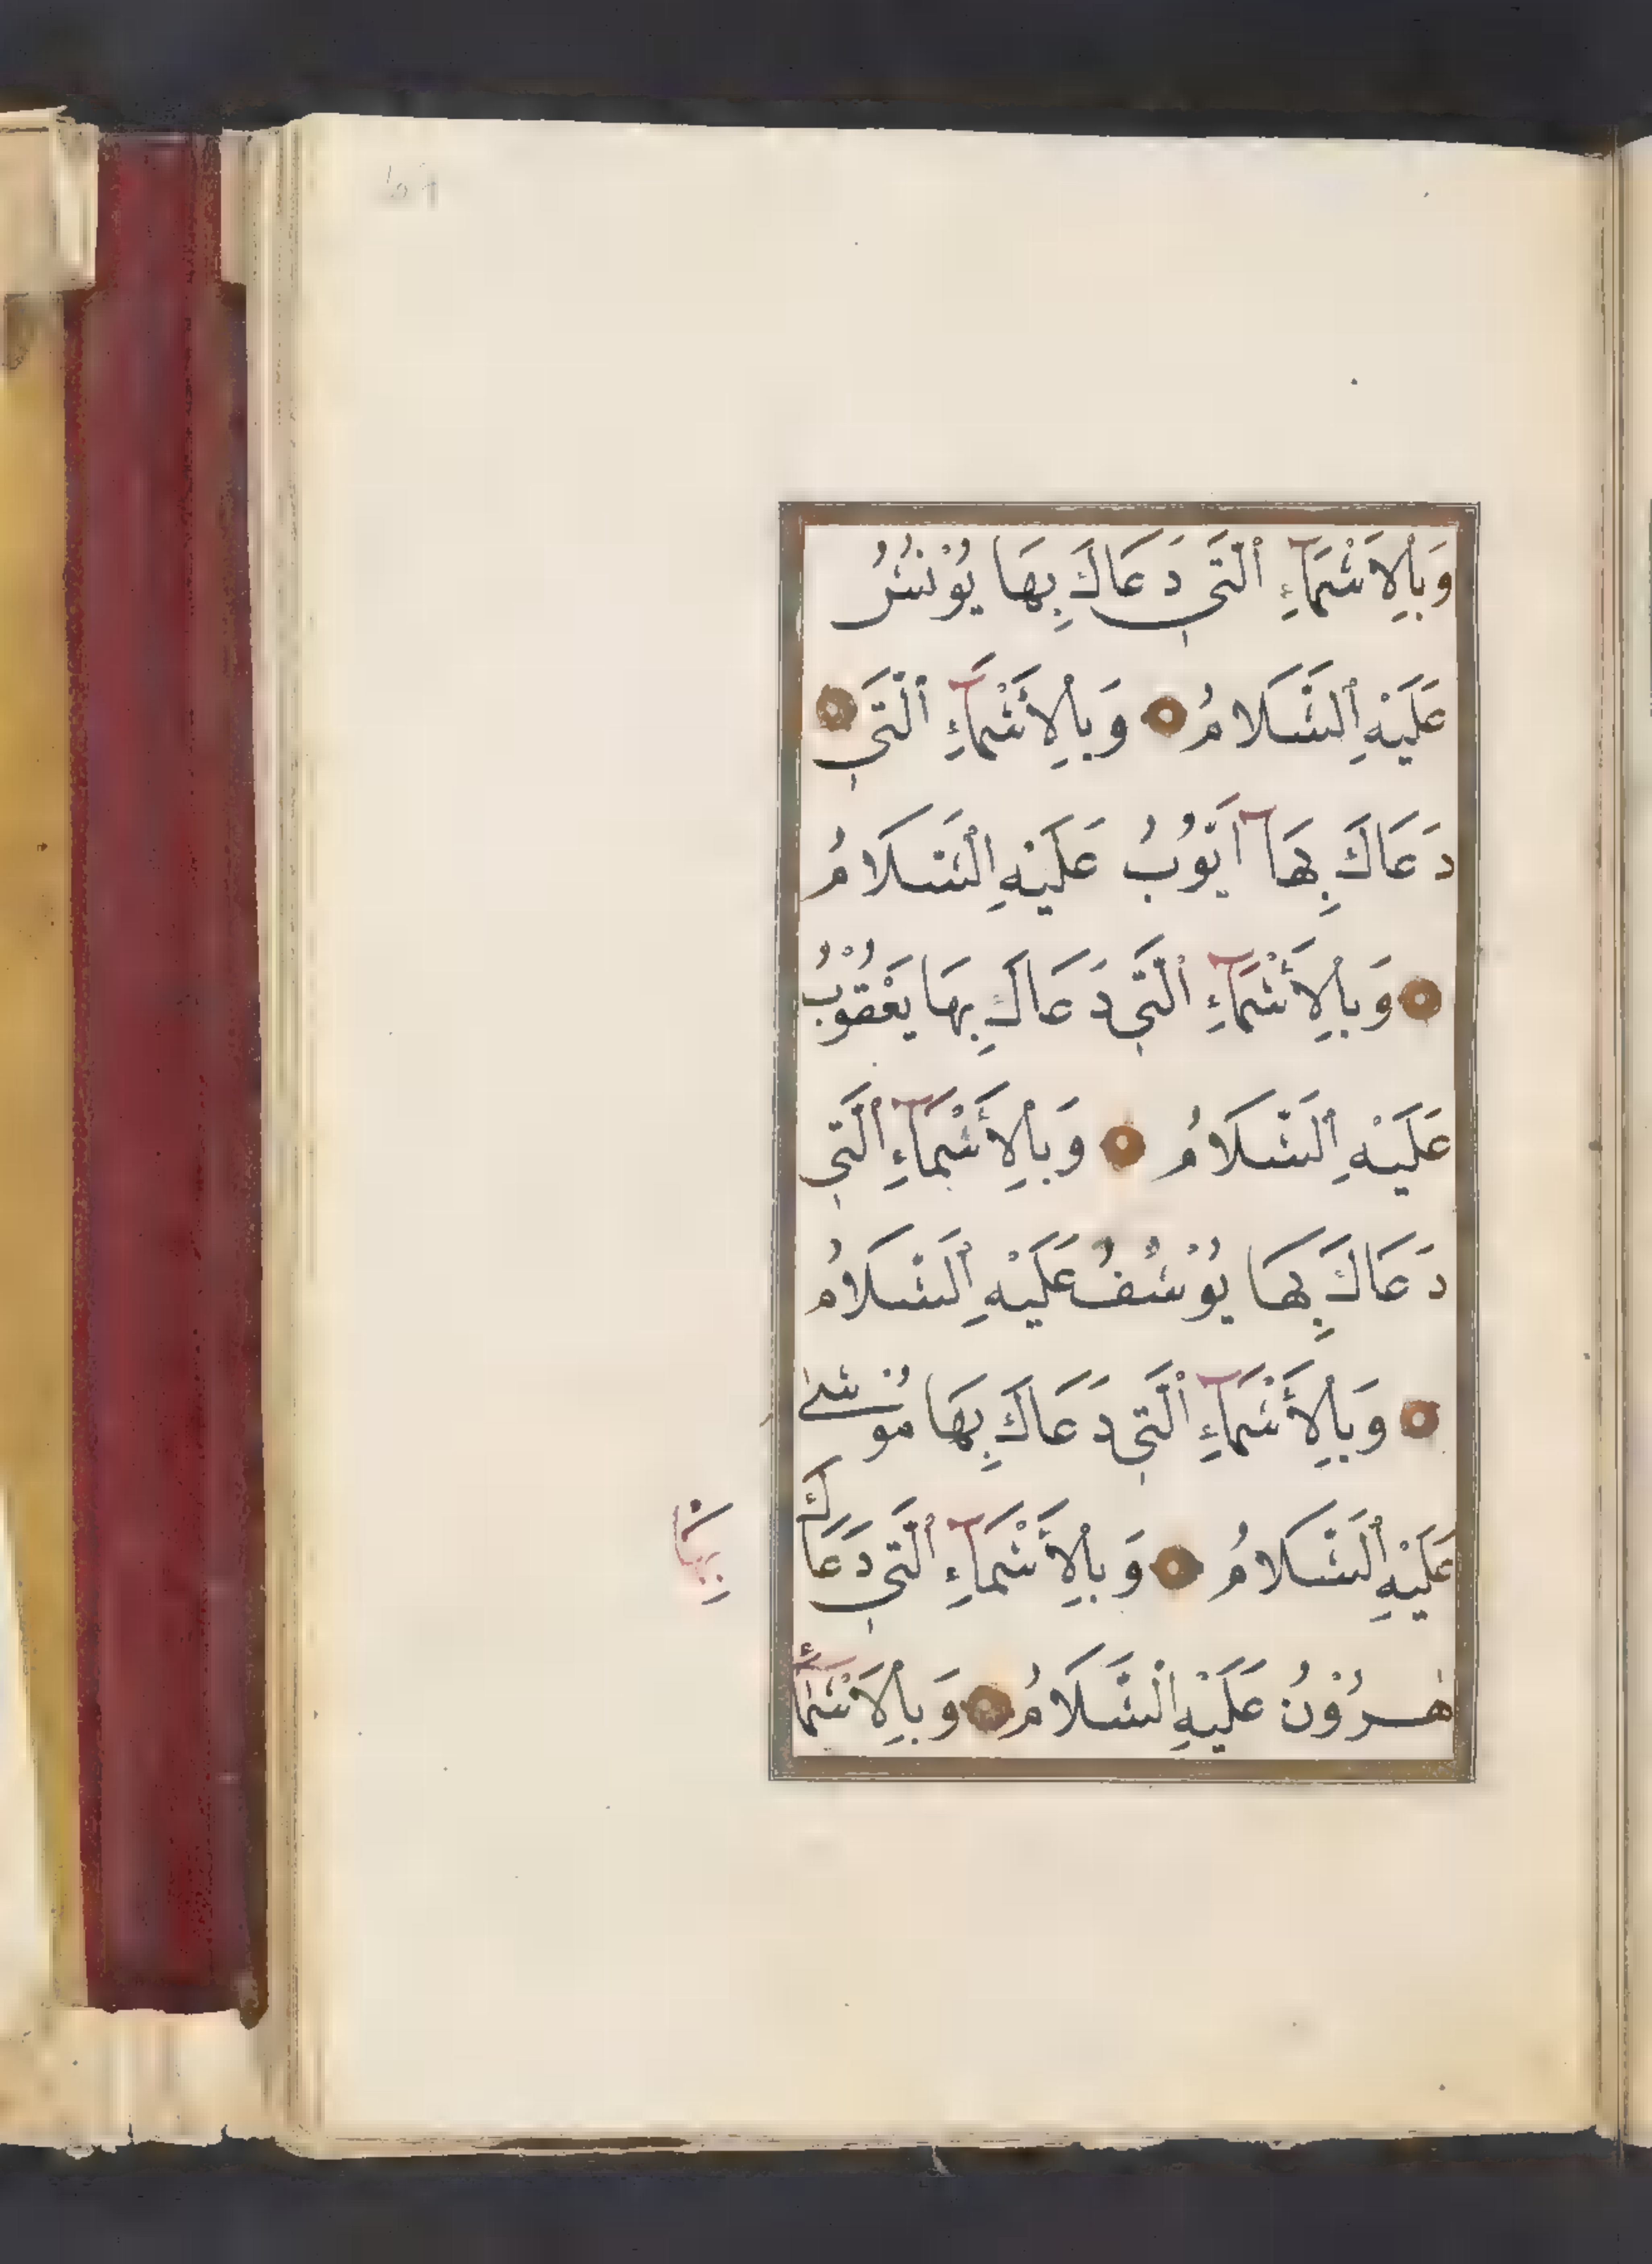 وَبِالْاَسْمَآءِ الَّتِي دَعَاكَ بِهَا يُوْنُسُ
عَلَيْهِ السَّلَامُ وَبِالْأَسْمَآءِ الَّتِي
دَعَاكَ بِهَآ اَيُّوْبُ عَلَيْهِ السَّلَامُ
وَبِالْأَسْمَآءِ الَّتِي دَعَاكَ بِهَا يَعْقُوْبُ
عَلَيْهِ السَّلَامُ وَبِالْأَسْمَآءِ الَّتِي
دَعَاكَ بِهَا يُوْسُفُ عَلَيْهِ السَّلَامُ
وَبِالْأَسْمَآءِ الَّتِي دَعَاكَ بِهَا مُوْسٰى
عَلَيْهِ السَّلَامُ وَبِالْأَسْمَآءِ الَّتِي دَعَاكَ
بِهَا
هٰرُوْنُ عَلَيْهِ السَّلَامُ وَبِالْاَسْمَآءِ